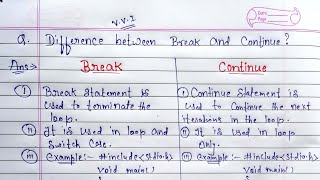 V.V.I
Date
Page
Q. Difference between Break and Continue?
Ans:-
Break
Continue
(i) Break statement is
used to terminate the
loop.
(ii) It is used in loop and
Switch Case.
(iii) example:- #include<stdio.h>
void main()
(i) Continue Statement is
used to Continue the next
iterations in the loop.
(ii) It is used in loop
Only.
(iii) example:- #include<stdio.h>
void main()